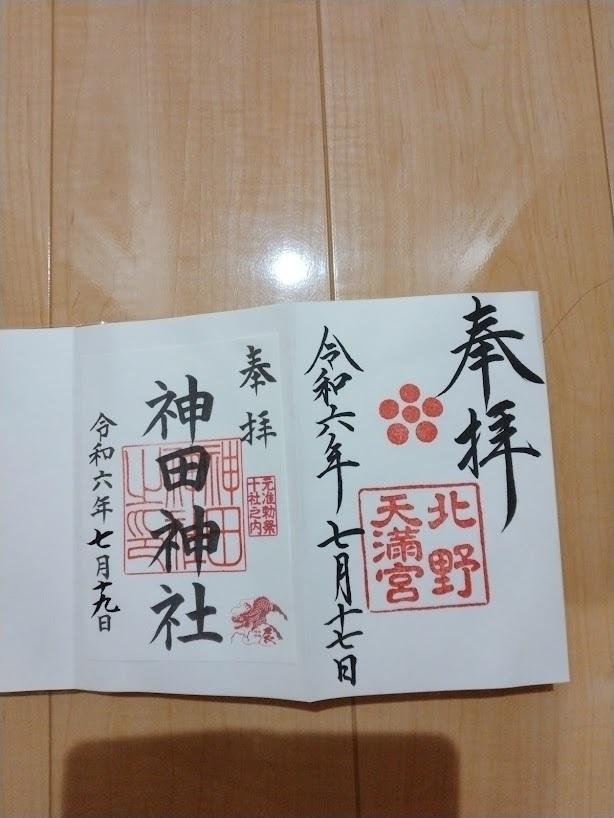 奉拝
北野
天満宮
令和六年 七月十七日
奉拝
元准勅祭
十社之内
神田神社
神田
神社
之印
令和六年 七月十九日